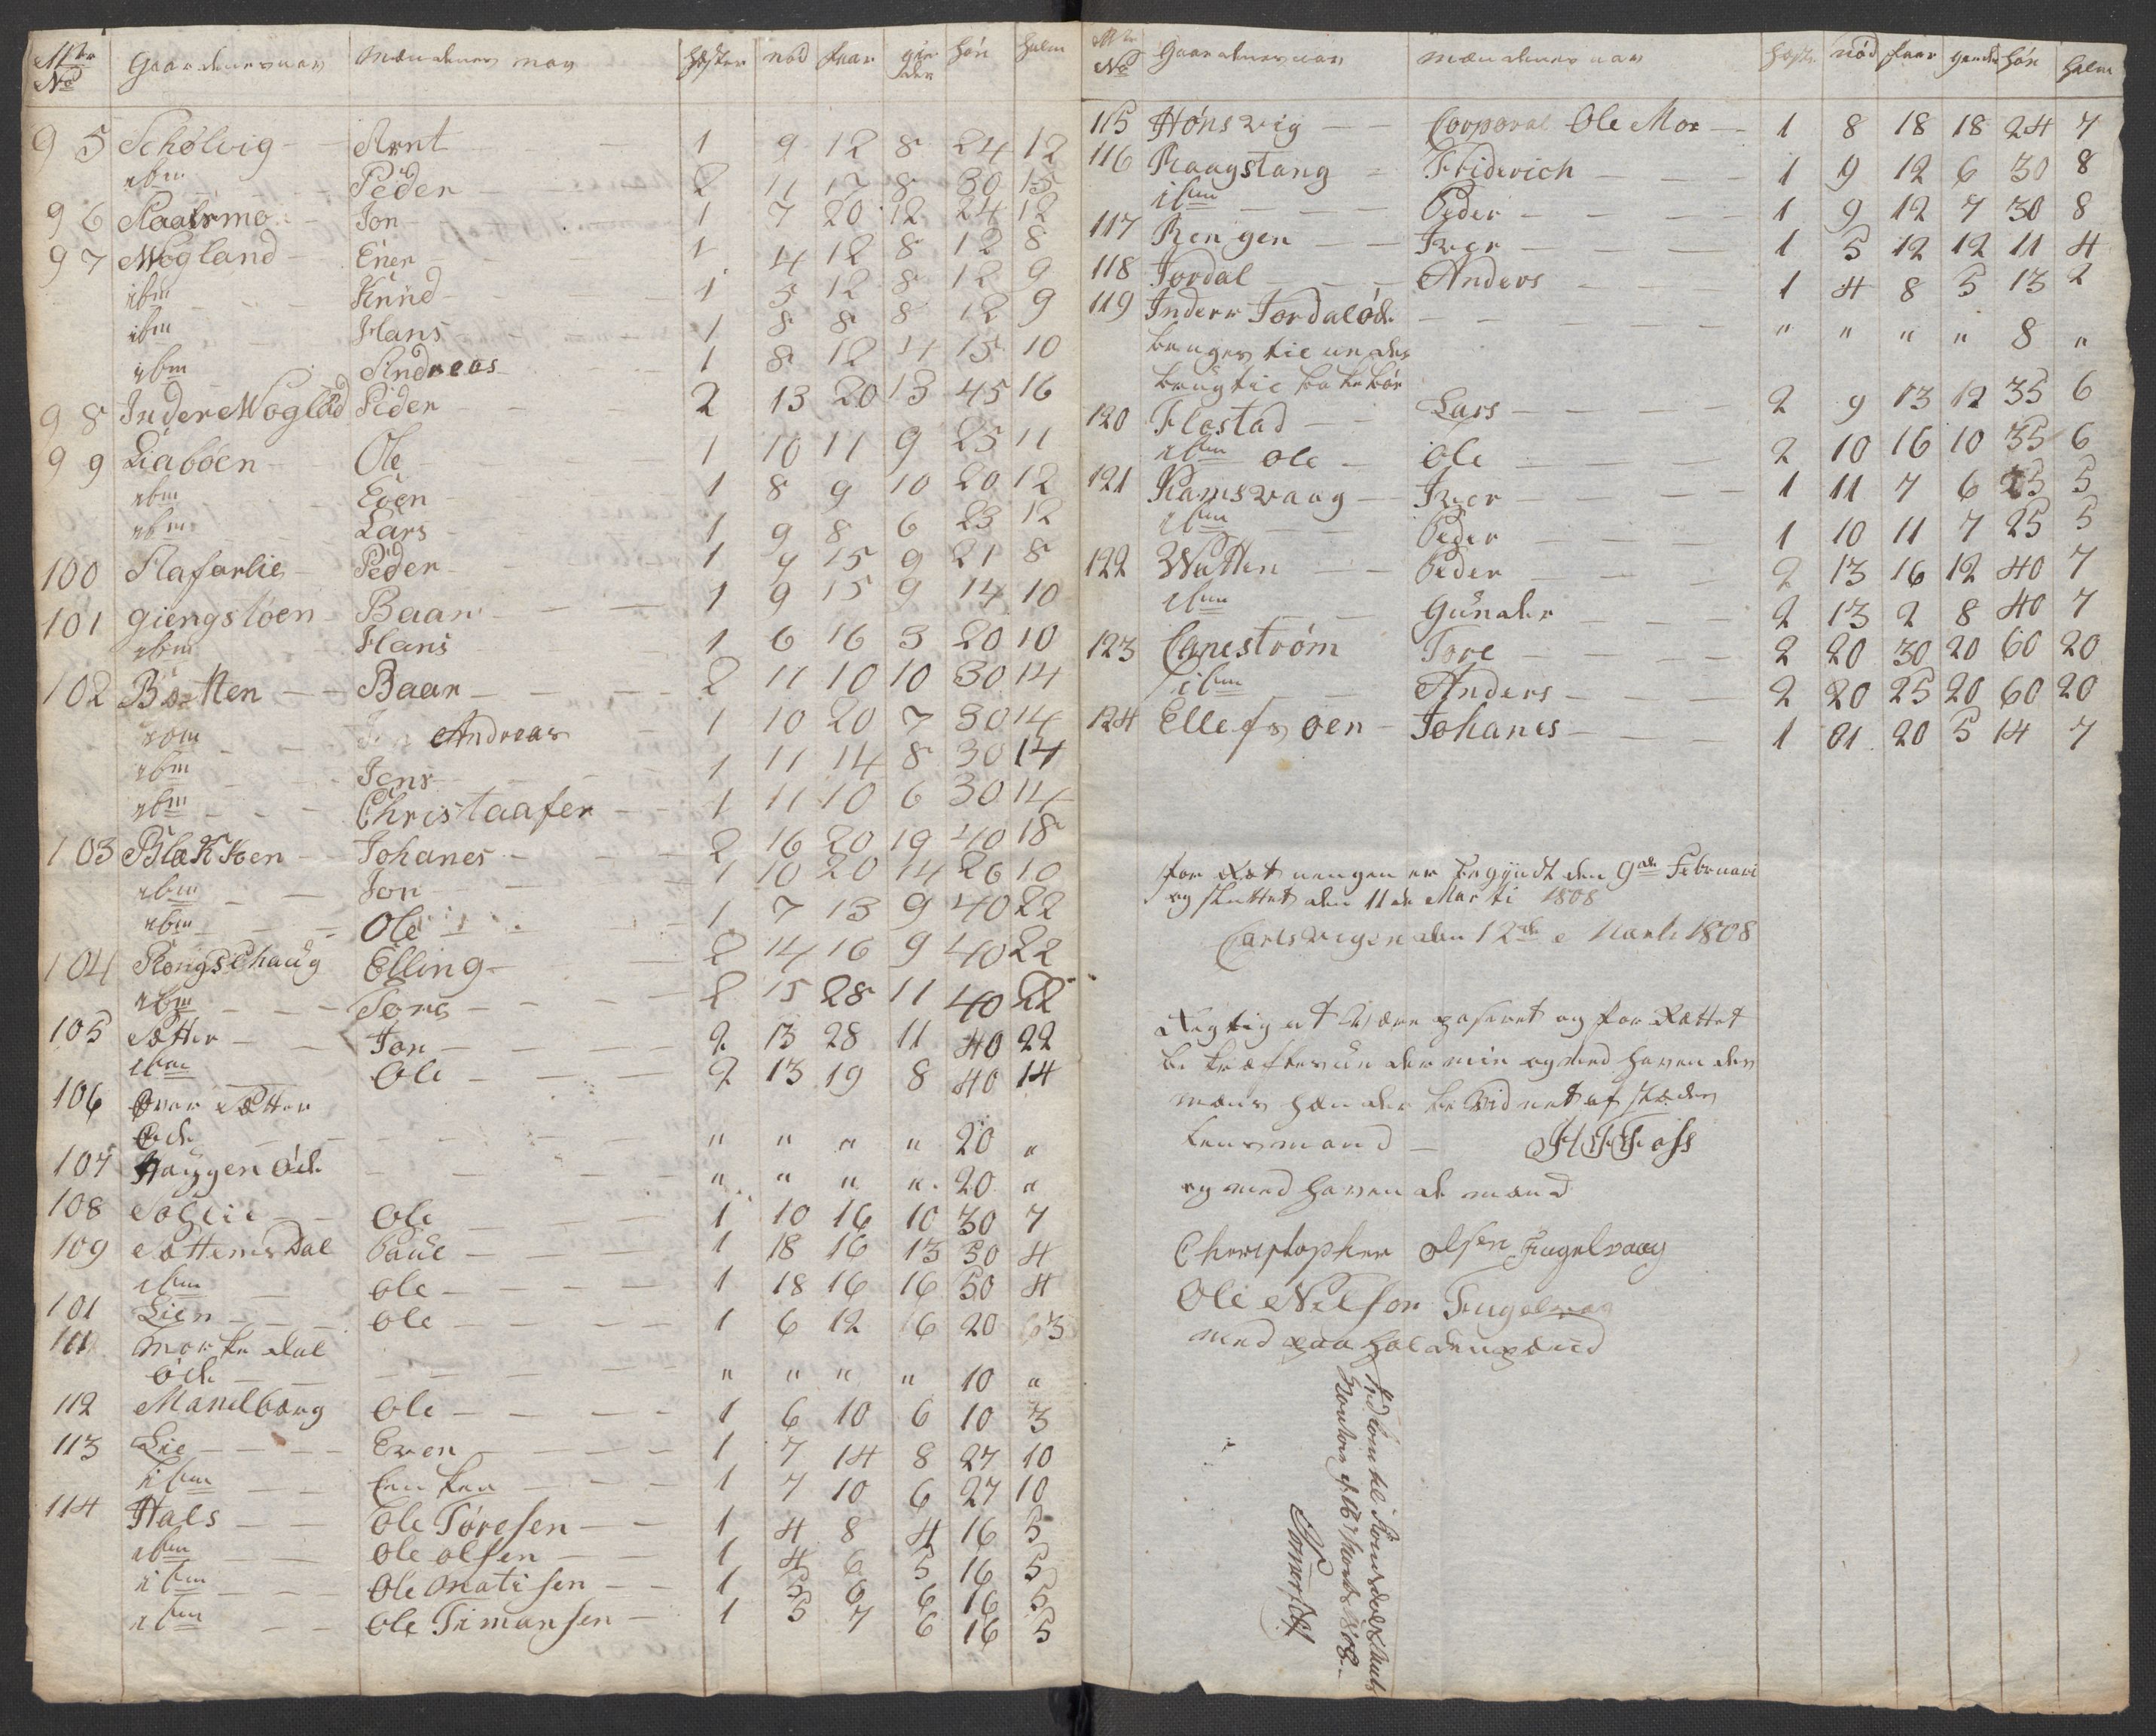 Mtr No Gaardenes nav Mændenes nav Hæster nød faar gie der høn halm
9 5 Schølvig Arnt 1 9 12 8 24 12
ibm Peder 2 11 17 8 30 15
9 6 Raalsmo Jon 1 7 20 12 24 12
9 7 Wogland Ener 1 4 12 8 12 8
ibm Knud 1 5 12 8 12 9
ibm Hans 1 8 8 8 12 9
ibm Andreas 1 8 12 4 15 10
9 8 Inder Woglad Peder 2 13 20 13 45 16
9 9 Liabøen Ole 1 10 11 9 25 11
ibm Even 1 8 9 10 20 12
ibm Lars 1 9 8 6 23 12
100 Slafarlie Peder 1 9 15 9 21 8
101 giengstøen Baar 1 9 15 9 14 10
ibm Hans 1 6 16 3 20 10
102 Botten Baar 2 11 10 10 30 14
ibm Andreas 1 10 20 7 30 14
ibm Jens 1 11 14 8 30 14
ibm Christaafer 1 11 10 6 30 14
103 Blakstoen Johanes 2 16 20 19 40 18
ibm Jon 1 10 20 14 26 10
ibm Ole 1 7 13 9 40 22
104 Kongschaug Elling 2 14 16 9 40 22
ibm Tore 2 15 28 11 40 22
105 Sætter Jon 2 13 28 11 40 22
ibm Ole 2 13 19 8 40 14
106 Øver Sætter
Øde " " " " 20 "
107 Haugen Øde " " " " 20 "
108 Sollie Ole 1 10 16 10 30 7
109 Sættemsdal Paul 1 18 16 13 50 4
ibm Ole 1 18 16 16 50 4
101 Lien Ole 1 6 12 6 20 3
111 Mørke dal
Øde " " " " 10 "
112 Manelbærg Ole 1 6 10 6 10 3
113 Lie Even 1 7 14 8 27 10
ibm Enken 1 7 10 6 27 10
114 Hals Ole Toresen 1 4 8 4 16 5
ibm Ole Olsen 1 4 6 5 16 5
ibm Ole Matisen 1 5 6 6 16 5
ibm Ole Timansen 1 5 7 6 16 5
Mtr No Gaardenes nav Mændenes nav Hæst nød faar geeder høn halm
115 Hønsvig Corporal Ole Moe 1 8 18 18 24 7
116 Raagstang Friderich 1 9 12 6 30 8
ibm Peder 1 9 12 7 30 8
117 Rengen Iver 1 5 12 12 11 4
118 Jordal Anders 1 4 8 5 13 2
119 Inderr Jordal øde " " " " 8 "
bruges til under
brugtil
120 Flostad Lars 2 9 13 12 35 6
ibm Ole Ole 2 10 16 10 35 6
121 Ramsvaag Iver 1 11 7 6 25 5
ibm Peder 1 10 11 7 25 5
122 Watten Peder 2 13 16 12 40 7
ibm Gunder 2 13 2 8 40 7
123 Canestrøm Tore 2 20 30 20 60 20
ibm Anders 2 20 25 20 60 20
124 Ellefsøen Johanes 1 01 20 5 14 7
forRætnengen er begyndt den 9de Februari
og sluttet den 11de Marti 1808
Carlsvigen den 12de Marti 1808
Regtig at være paseret og forRættet
bekræftes under min og med havendes
mæns hænder bevidnet af stædes
Lensmand HTFoss
og med havende mænd
Cherestopher Olsen Fugelvaag
Ole Nilson Fugelvaag
med paa holden pænd